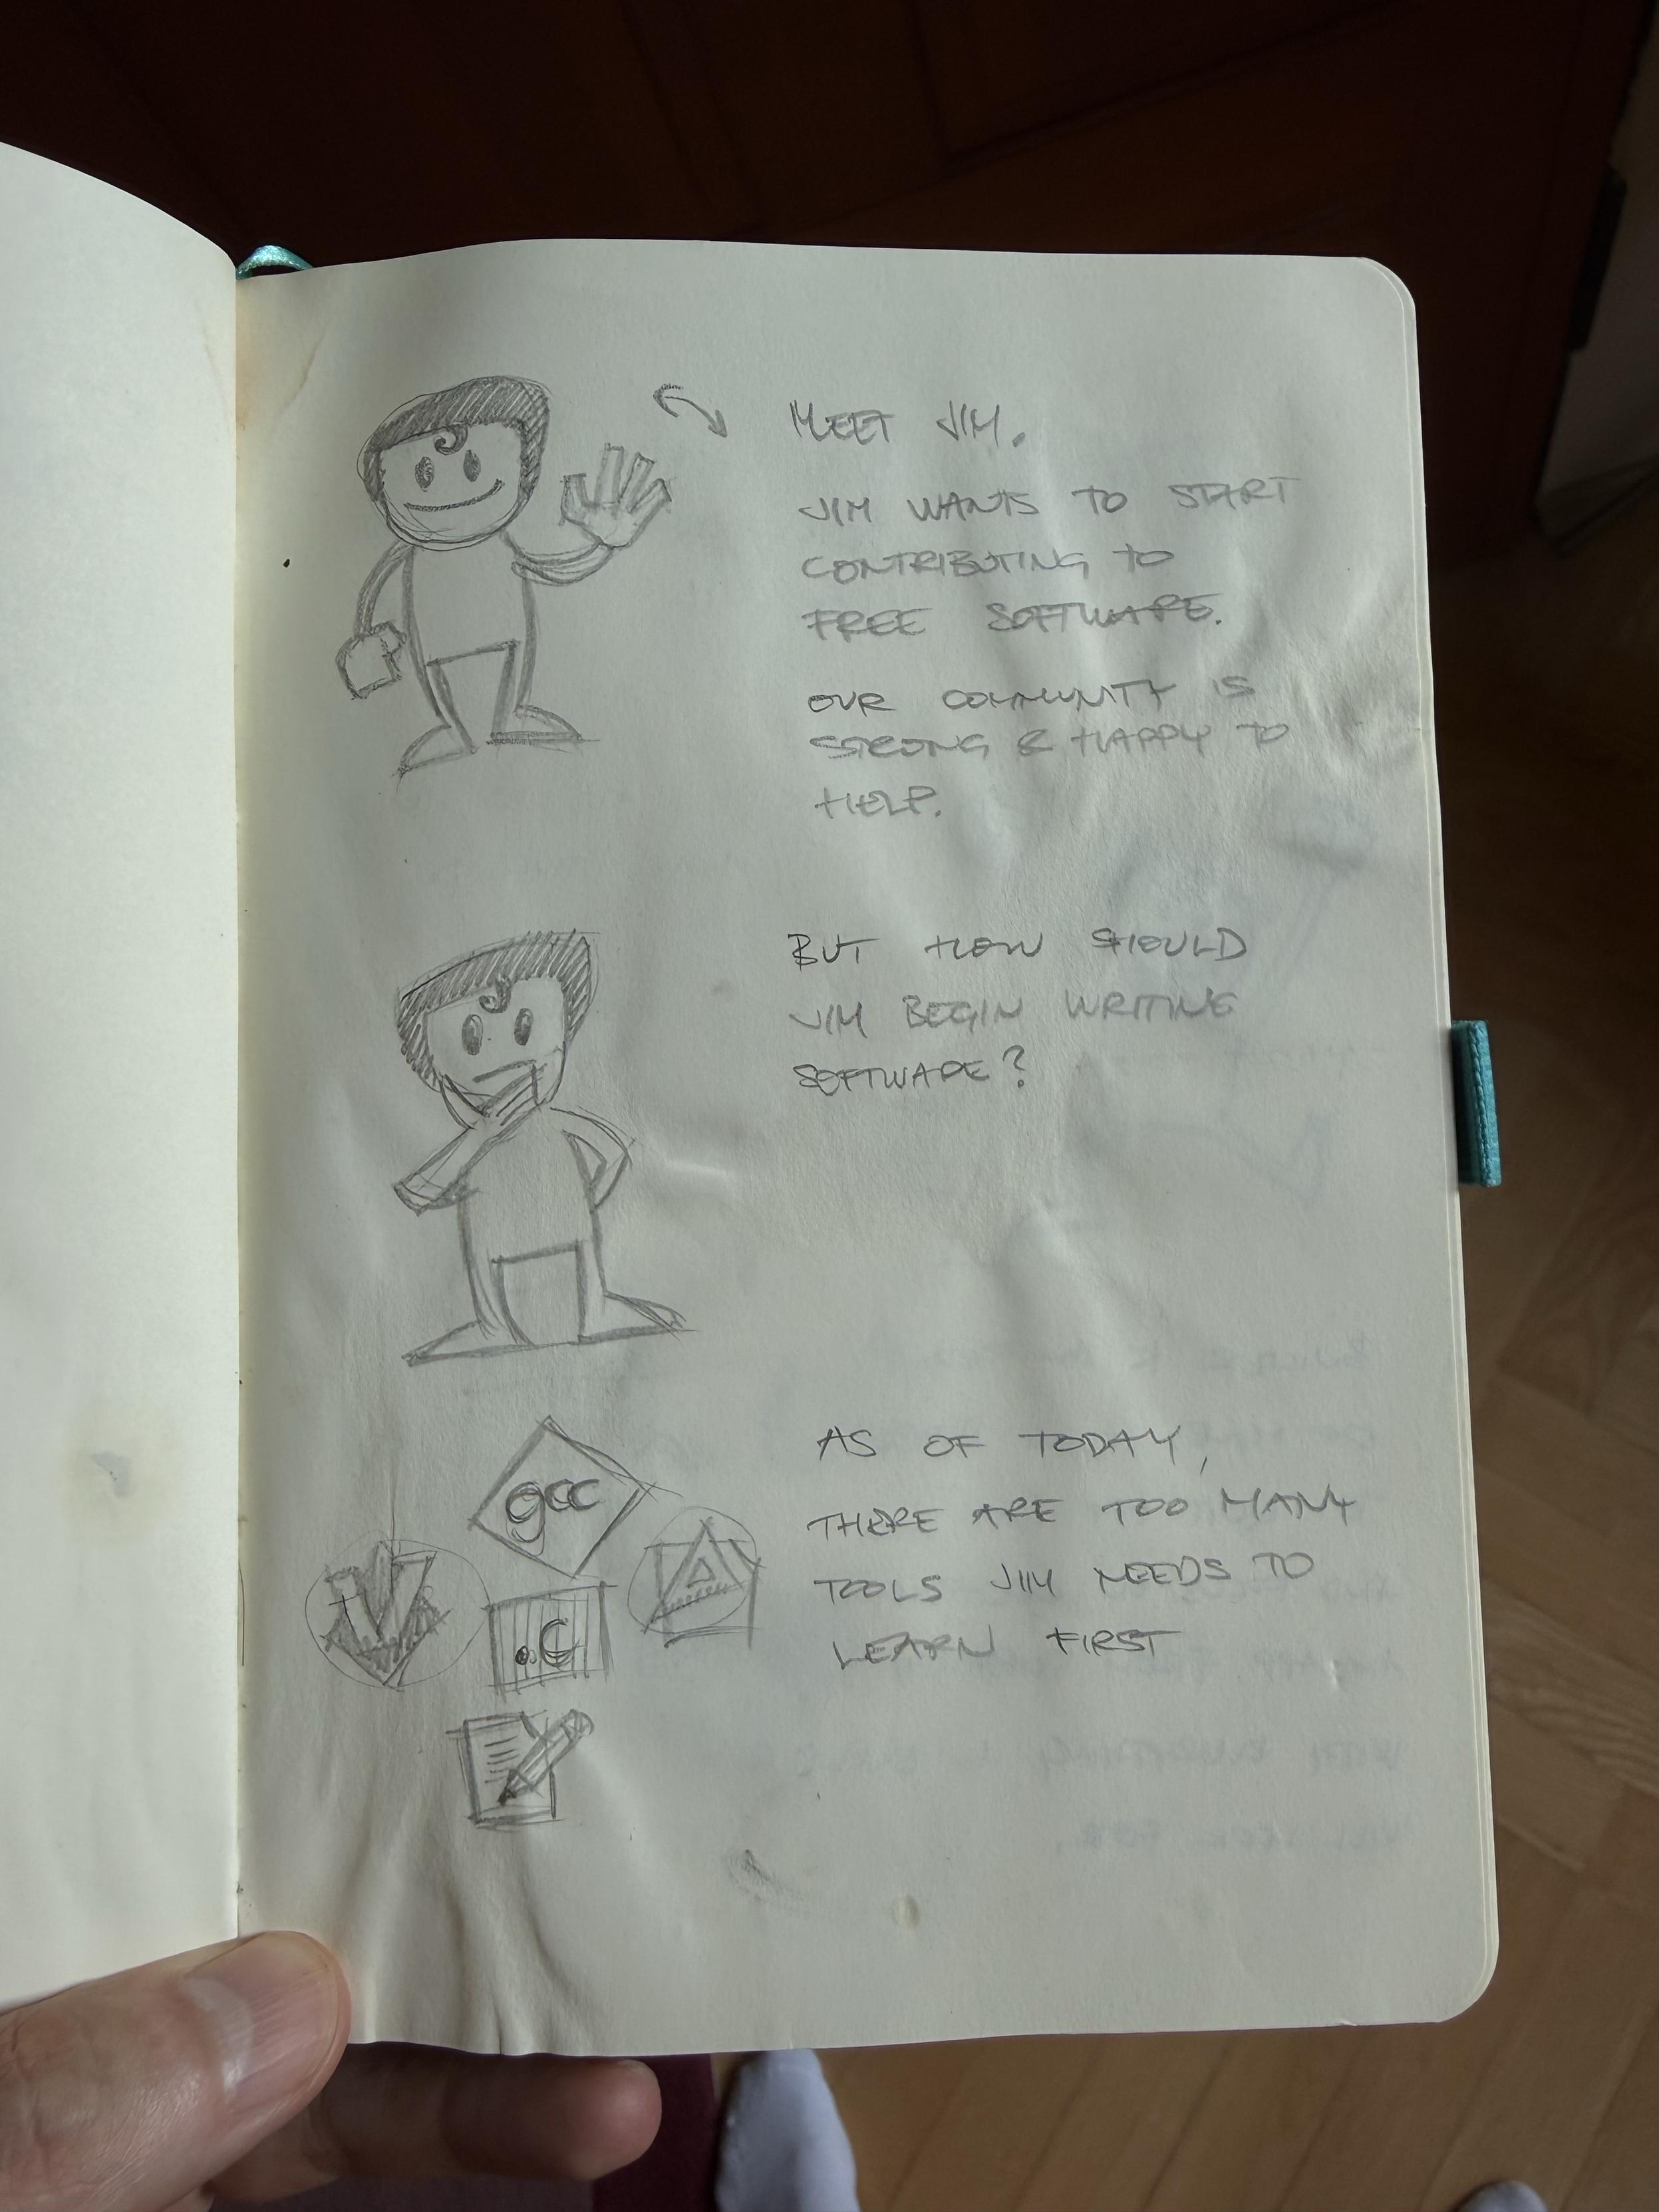 MEET JIM.
JIM WANTS TO START
CONTRIBUTING TO
FREE SOFTWARE.
OUR COMMUNITY IS
STRONG & HAPPY TO
HELP.
BUT HOW SHOULD
JIM BEGIN WRITING
SOFTWARE?
gcc
.C
AS OF TODAY,
THERE ARE TOO MANY
TOOLS JIM NEEDS TO
LEARN FIRST